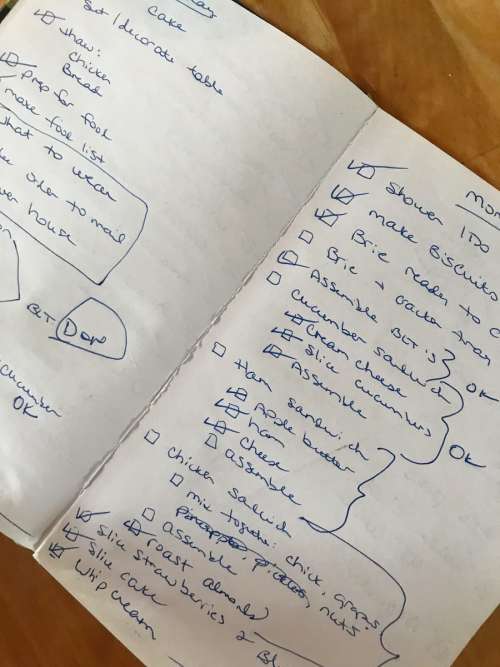 Cake
Set / decorate table
Thaw:
Chicken
Bread
Prep for food
make food list
what to wear
order to mail
house
BLT Don
cucumber
OK
Shower / Do
make Biscuits
Brie ready to
Brie + cracker tray
Assemble BLT's
OK
cucumber sandwich
cream cheese
slice cucumbers
Assemble
OK
Ham sandwich
Apple butter
ham
cheese
assemble
chicken sandwich
mix together: chick, craps
nuts
assemble
roast almonds
slice strawberries &
Bl
slice cake
whip cream